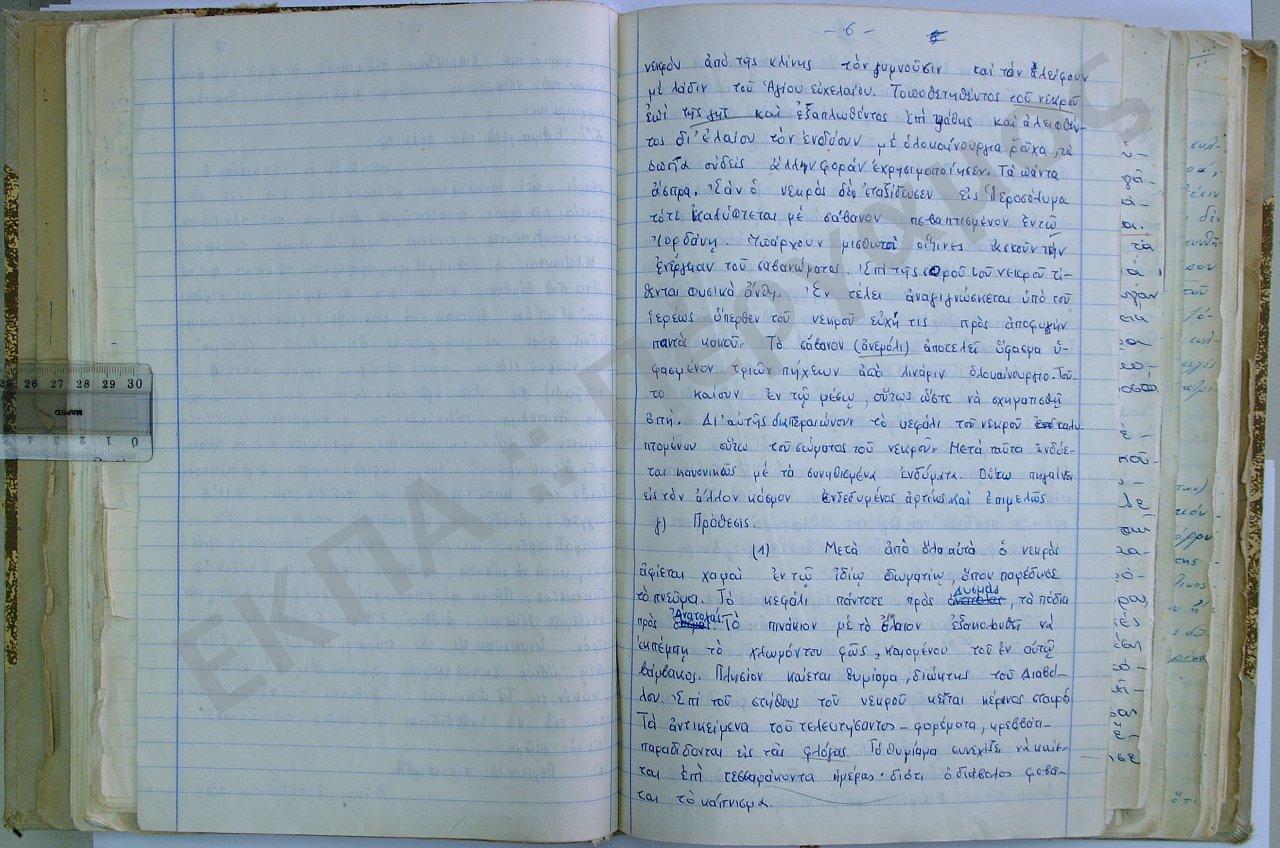 - 6 -
νεκρὸν ἀπὸ τῆς κλίνης τὸν γυμνοῦσιν καὶ τὸν ἀλείφουν
μὲ λάδιν τοῦ Ἁγίου εὐχελαίου. Τοποθετηθέντος τοῦ νεκροῦ
ἐπὶ τῆς γῆς καὶ ἐξαπλωθέντος ἐπὶ ψάθης καὶ ἀλειφθέν-
τος δι' ἐλαίου τὸν ἐνδύουν μὲ ὁλοκαίνουργια ροῦχα, τὰ
ὁποῖα οὐδεὶς ἄλλην φορὰν ἐχρησιμοποίησεν. Τὰ πάντα
ἄσπρα. Ἐὰν ὁ νεκρὸς δὲν ἐταξίδευσεν εἰς Ἱεροσόλυμα
τότε καλύπτεται μὲ σάβανον βαπτισμένον ἐν τῷ
Ἰορδάνῃ. Ὑπάρχουν μισθωτοὶ οἵτινες ἀσκοῦν τὴν
ἐνέργειαν τοῦ σαβανώματος. Ἐπὶ τῆς σοροῦ τοῦ νεκροῦ τί-
θενται φυσικὰ ἄνθη. Ἐν τέλει ἀναγιγνώσκεται ὑπὸ τοῦ
ἱερέως ὕπερθεν τοῦ νεκροῦ εὐχή τις πρὸς ἀποφυγὴν
παντὸς κακοῦ. Τὸ σάβανον (ἀνεμόλι) ἀποτελεῖ ὕφασμα ὑ-
φασμένον τριῶν πήχεων ἀπὸ λινάριν ὁλοκαίνουργιο. Τοῦ-
το καίουν ἐν τῷ μέσῳ, οὕτως ὥστε νὰ σχηματισθῇ
ὀπή. Δι' αὐτῆς διαπεραιώνουν τὸ κεφάλι τοῦ νεκροῦ καλυ-
πτομένου οὕτω τοῦ σώματος τοῦ νεκροῦ. Μετὰ ταῦτα ἐνδύε-
ται κανονικῶς μὲ τὰ συνηθισμένα ἐνδύματα. Οὕτω πηγαίνει
εἰς τὸν ἄλλον κόσμον ἐνδεδυμένος ἀρτίως καὶ ἐπιμελῶς
γ) Πρόθεσις.
(1) Μετὰ ἀπὸ ὅλα αὐτὰ ὁ νεκρὸς
ἀφίεται χαμαὶ ἐν τῷ ἰδίῳ δωματίῳ, ὅπου παρέδωσε
τὸ πνεῦμα. Τὸ κεφάλι πάντοτε πρὸς Δυσμὰς, τὰ πόδια
πρὸς Ἀνατολάς. Τὸ πινάκιον μὲ τὸ ἔλαιον ἐξακολουθεῖ νὰ
ἐκπέμπῃ τὸ χλωμόν του φῶς, καιομένου τοῦ ἐν αὐτῷ
βάμβακος. Πλησίον καίεται θυμίαμα, διώκτης τοῦ Διαβό-
λου. Ἐπὶ τοῦ στήθους τοῦ νεκροῦ κεῖται κέρινος σταυρὸ
Τὰ ἀντικείμενα τοῦ τελευτήσαντος - φορέματα, κρεββάτι -
παραδίδονται εἰς τὰς φλόγας. Τὸ θυμίαμα συνεχίζει νὰ καίε-
ται ἐπὶ τεσσαράκοντα ἡμέρας · διότι ὁ διάβολος φοβᾶ-
ται τὸ κάπνισμα.
ΕΚΠΑ :: ΠΕΡΓΑΜΟΣ
25 26 27 28 29 30
MAPED
4 3 2 1 0